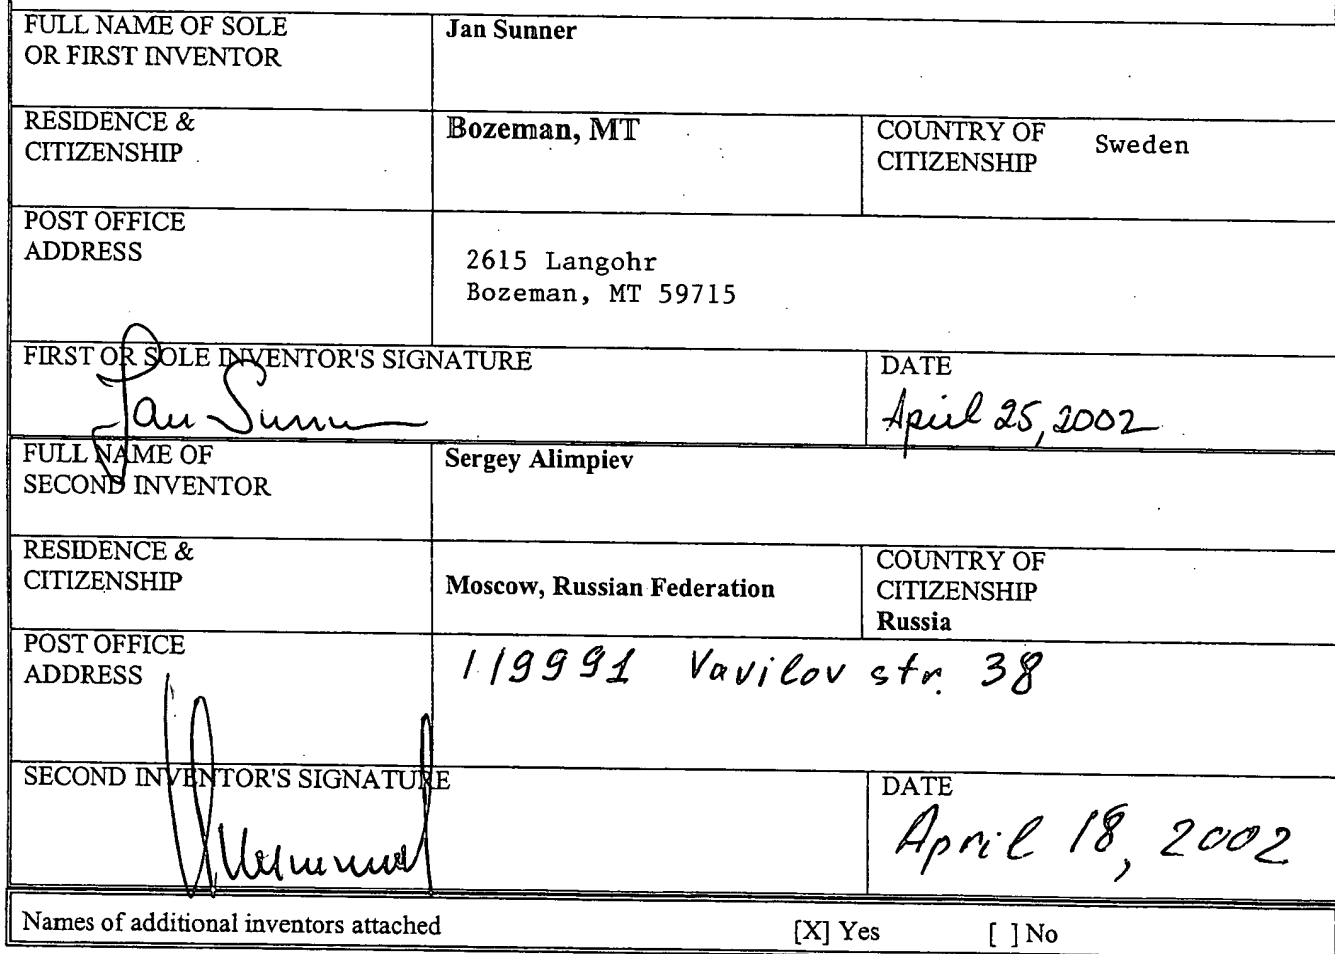 FULL NAME OF SOLE
OR FIRST INVENTOR
Jan Sunner
RESIDENCE &
CITIZENSHIP
Bozeman, MT
COUNTRY OF
CITIZENSHIP
Sweden
POST OFFICE
ADDRESS
2615 Langohr
Bozeman, MT 59715
FIRST OR SOLE INVENTOR'S SIGNATURE
Jan Sunner
DATE
April 25, 2002
FULL NAME OF
SECOND INVENTOR
Sergey Alimpiev
RESIDENCE &
CITIZENSHIP
Moscow, Russian Federation
COUNTRY OF
CITIZENSHIP
Russia
POST OFFICE
ADDRESS
119991 Vavilov str. 38
SECOND INVENTOR'S SIGNATURE
DATE
April 18, 2002
Names of additional inventors attached
[X] Yes [ ] No